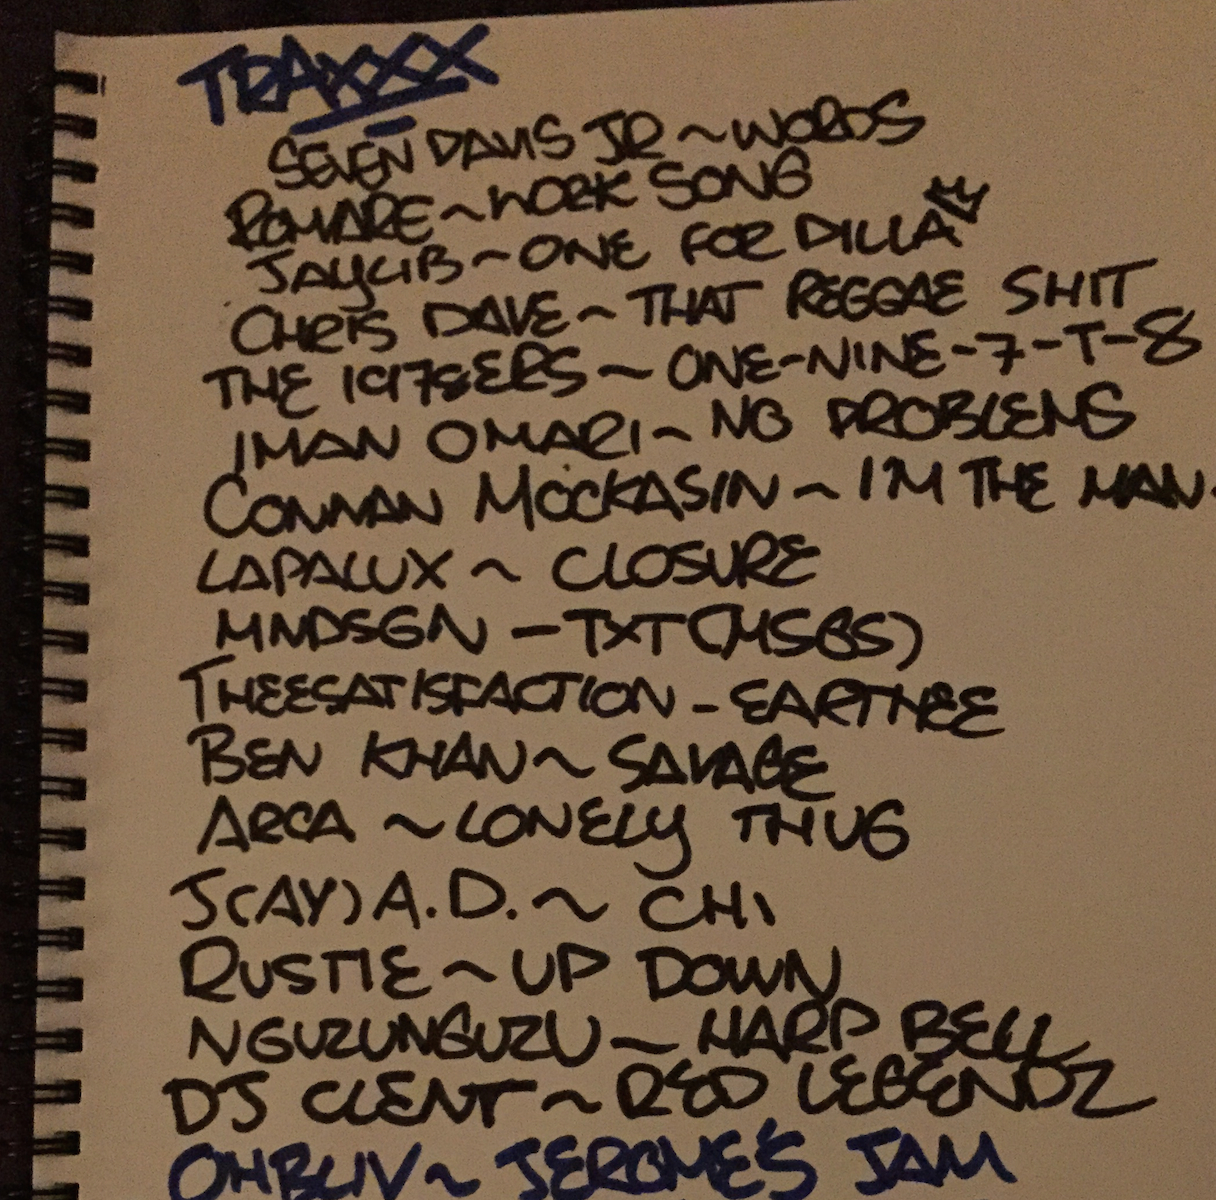 TRAXXX
SEVEN DAVIS JR ~ WORDS
ROMARE ~ WORK SONG
JAYLIB ~ ONE FOR DILLA
CHRIS DAVE ~ THAT REGGAE SHIT
THE 1978ERS ~ ONE-NINE-7-T-8
IMAN OMARI ~ NO PROBLEMS
CONNAN MOCKASIN ~ I'M THE MAN
LAPALUX ~ CLOSURE
MNDSGN - TXT (MSGS)
THEESATISFACTION - EARTHEE
BEN KHAN ~ SAVAGE
ARCA ~ LONELY THUG
J(AY) A.D. ~ CHI
RUSTIE ~ UP DOWN
NGUZUNGUZU ~ HARP BELL
DJ CLENT ~ RED LEGENDZ
OHBLIV ~ JEROME'S JAM